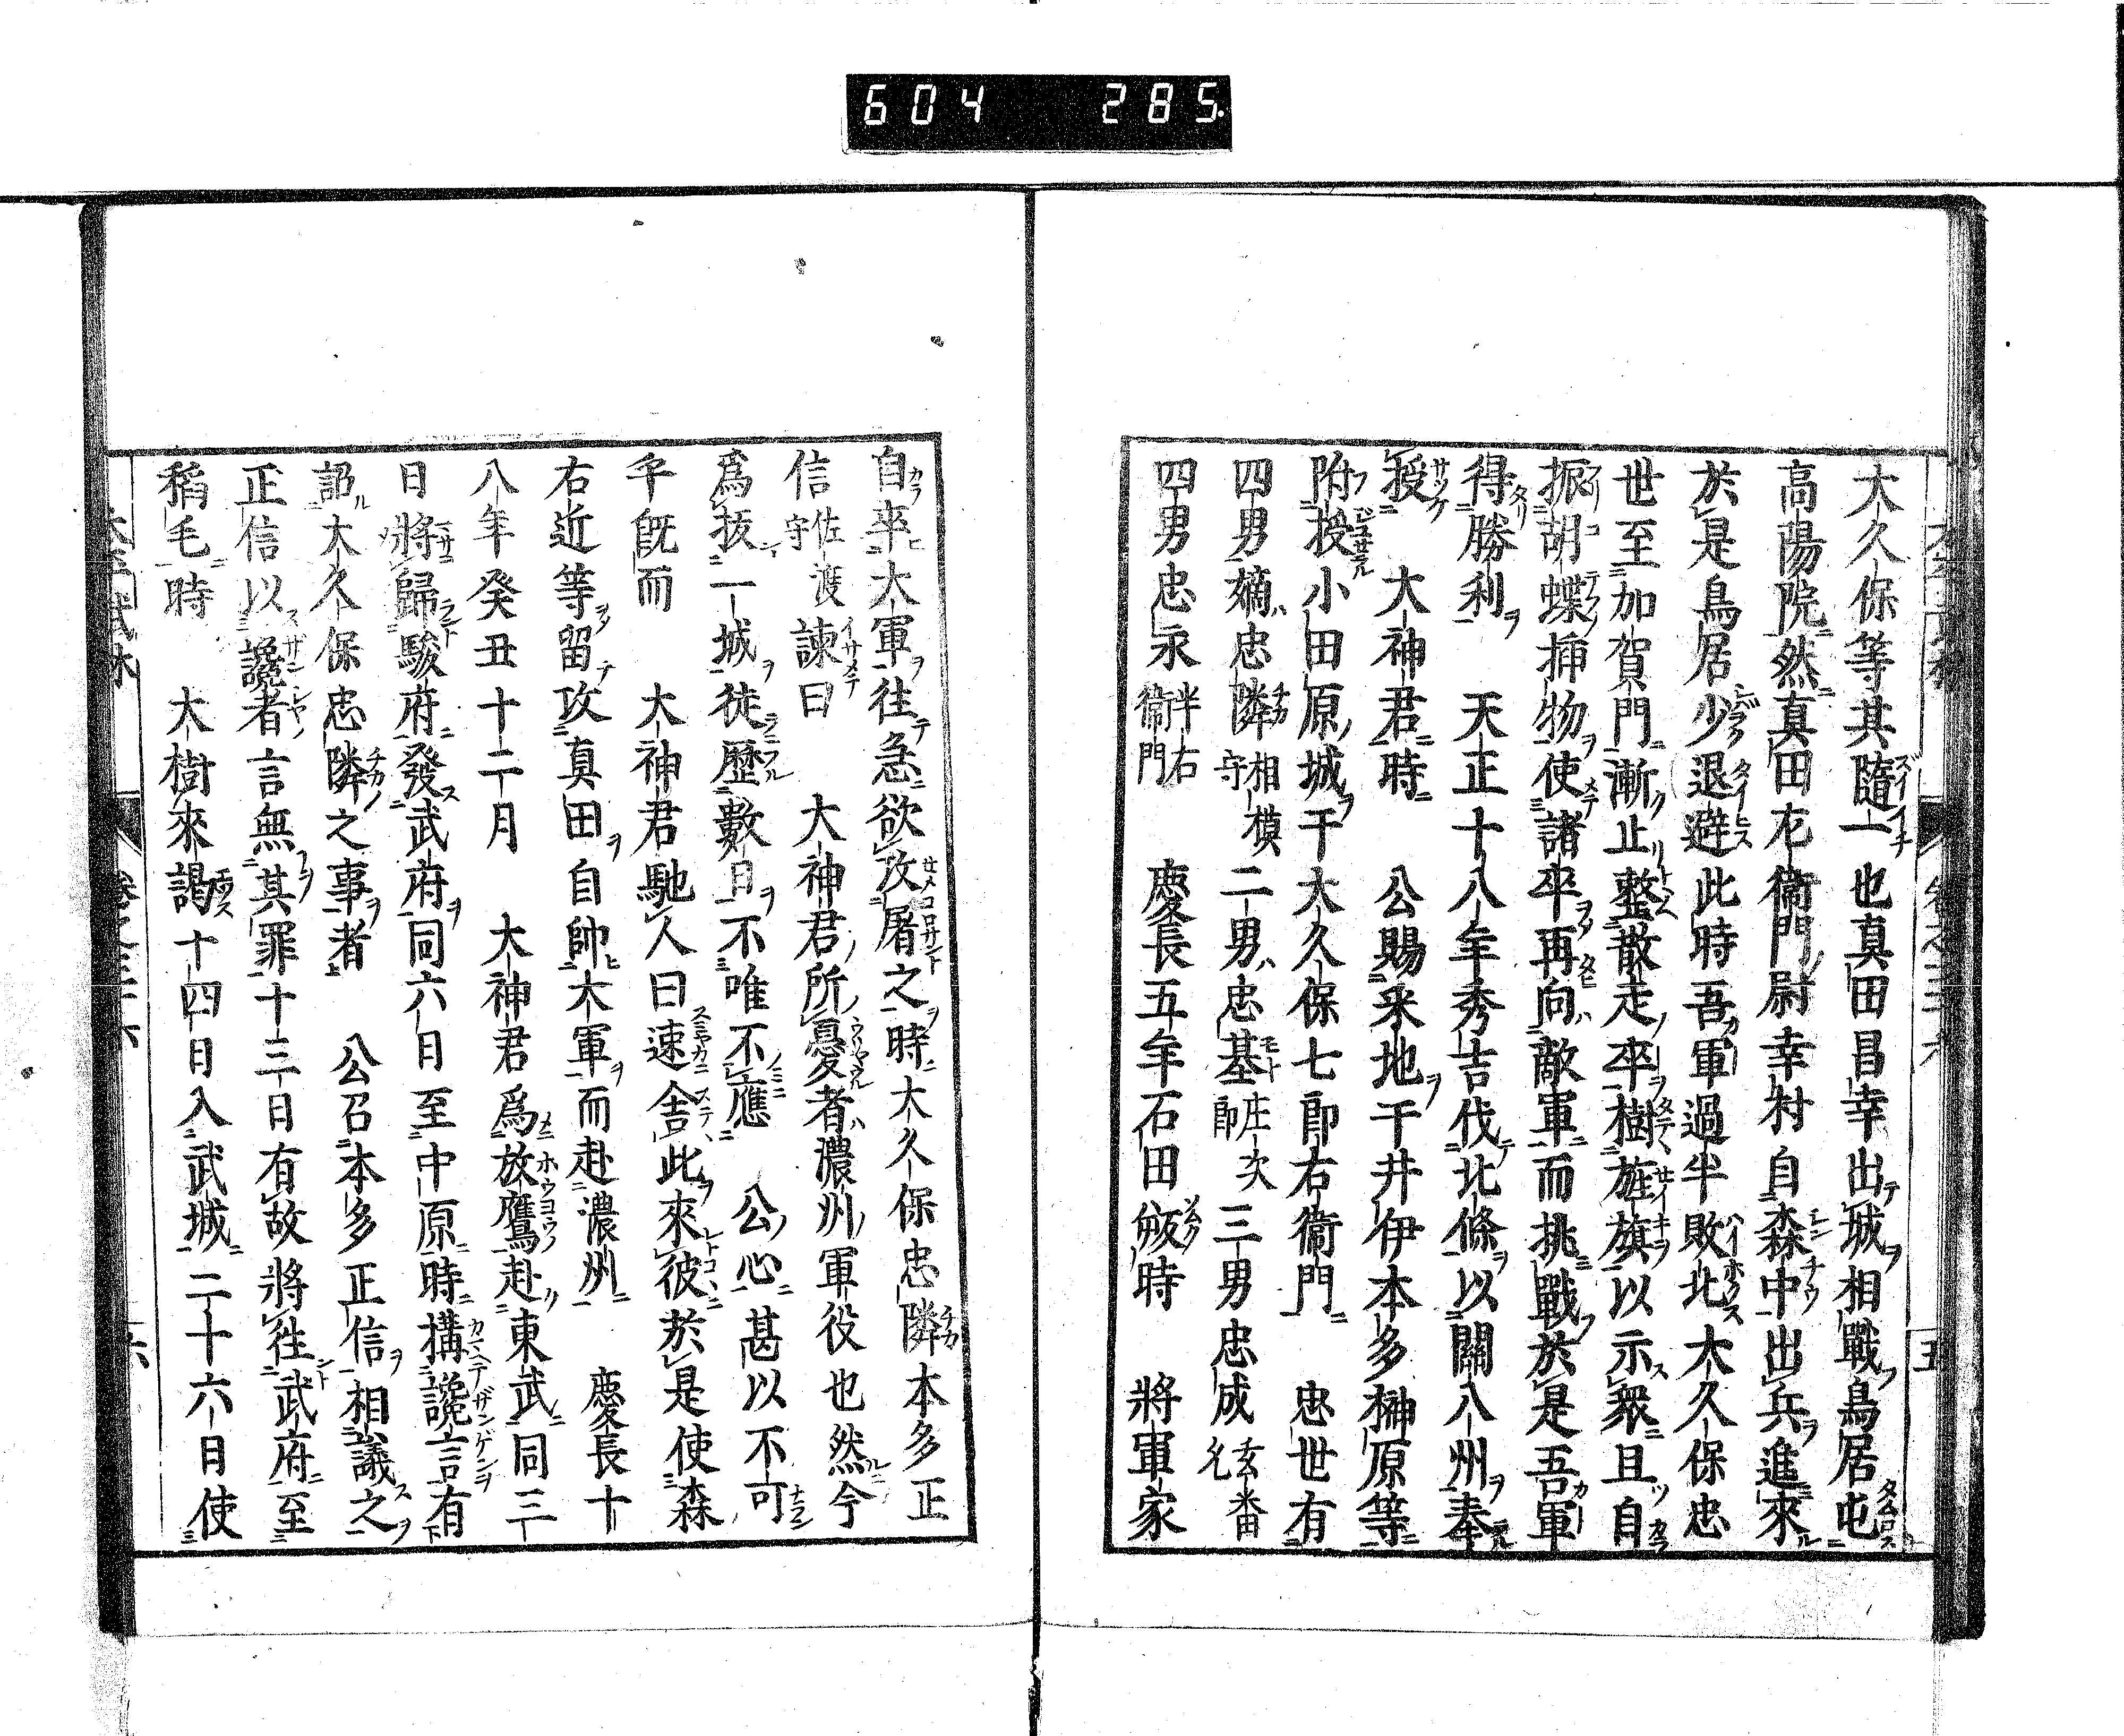 604 285
大久保等其隨一也真田昌幸出城相戰鳥居屯
高陽院然真田左衞門尉幸村自森中出兵進來
於是鳥居少退避此時吾軍過半敗北大久保忠
世至加賀門漸止整散走卒樹旌旗以示衆且自
振胡蝶揷物使諸卒再向敵軍而挑戰於是吾軍
得勝利　天正十八年秀吉伐北條以關八州奉
授　大神君時　公賜釆地于井伊本多榊原等
附授小田原城于大久保七郎右衞門　忠世有
四男嫡忠隣相模守二男忠基庄次郎三男忠成玄番允
四男忠永半右衞門　慶長五年石田叛時　將軍家
自率大軍往急欲攻屠之時大久保忠隣本多正
信佐渡守諫曰　大神君所憂者濃州軍役也然今
爲拔一城徒歷數日不唯不應　公心甚以不可
乎旣而　大神君馳人曰速舍此來彼於是使森
右近等留攻真田自帥大軍而赴濃州　慶長十
八年癸丑十二月　大神君爲放鷹赴東武同三
日將歸駿府發武府同六日至中原時搆讒言有
訟大久保忠隣之事者　公召本多正信相議之
正信以讒者言無其罪十三日有故將往武府至
稻毛時　大樹來謁十四日入武城二十六日使